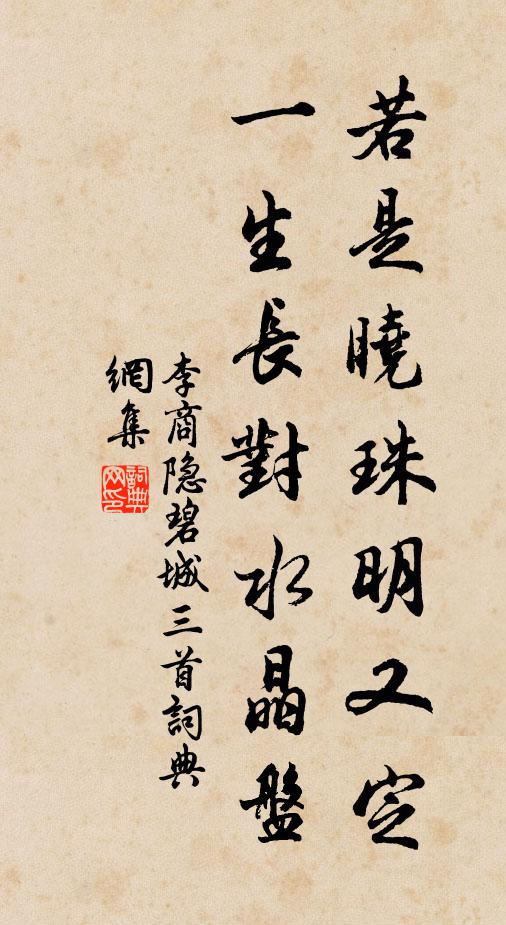 若是曉珠明又定
一生長對水晶盤
李商隐碧城三首詞典
網集
詞典網印